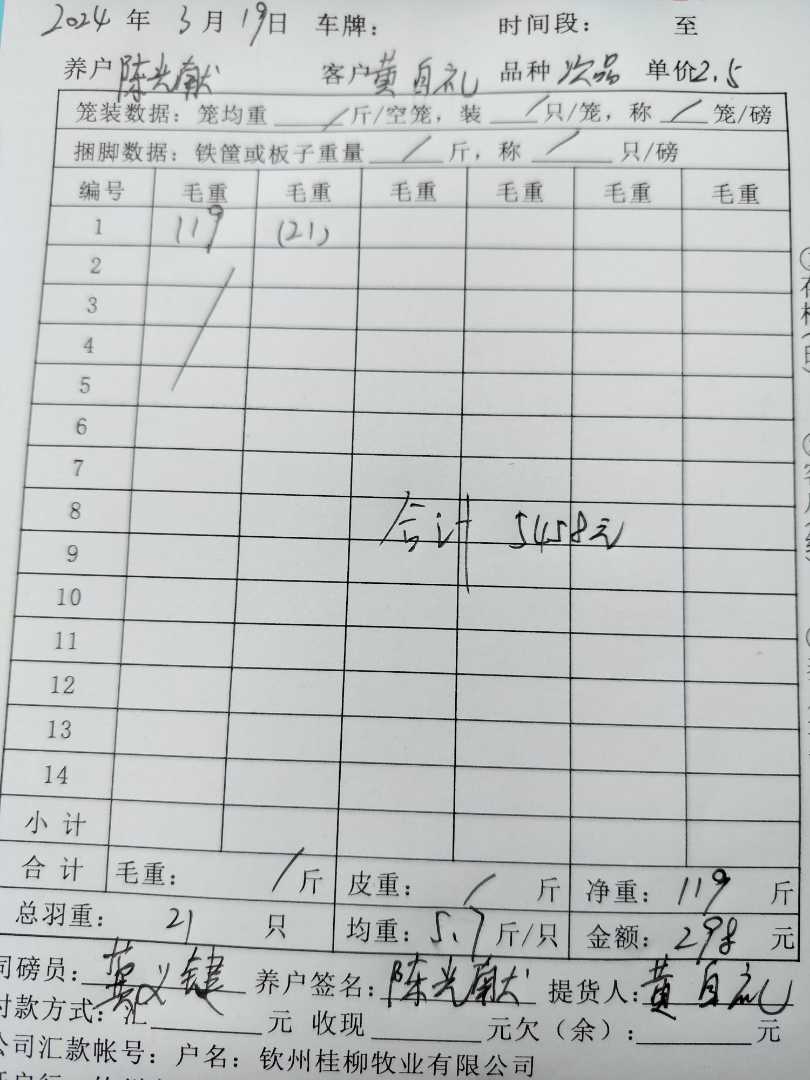 2024 年 3 月 19 日 车牌： 时间段： 至
养户 陈光献 客户 黄自礼 品种 次品 单价 2.5
笼装数据：笼均重 / 斤/空笼，装 / 只/笼，称 / 笼/磅
捆脚数据：铁筐或板子重量 / 斤，称 / 只/磅
编号 毛重 毛重 毛重 毛重 毛重 毛重
1 119 (21)
2
3
4
5
6
7
8 合计 5458元
9
10
11
12
13
14
小计
合计 毛重： / 斤 皮重： / 斤 净重：119 斤
总羽重： 21 只 均重：5.7 斤/只 金额：298 元
司磅员： 养户签名：陈光献 提货人：黄自礼
付款方式：汇 元 收现 元欠（余）： 元
公司汇款帐号：户名：钦州桂柳牧业有限公司